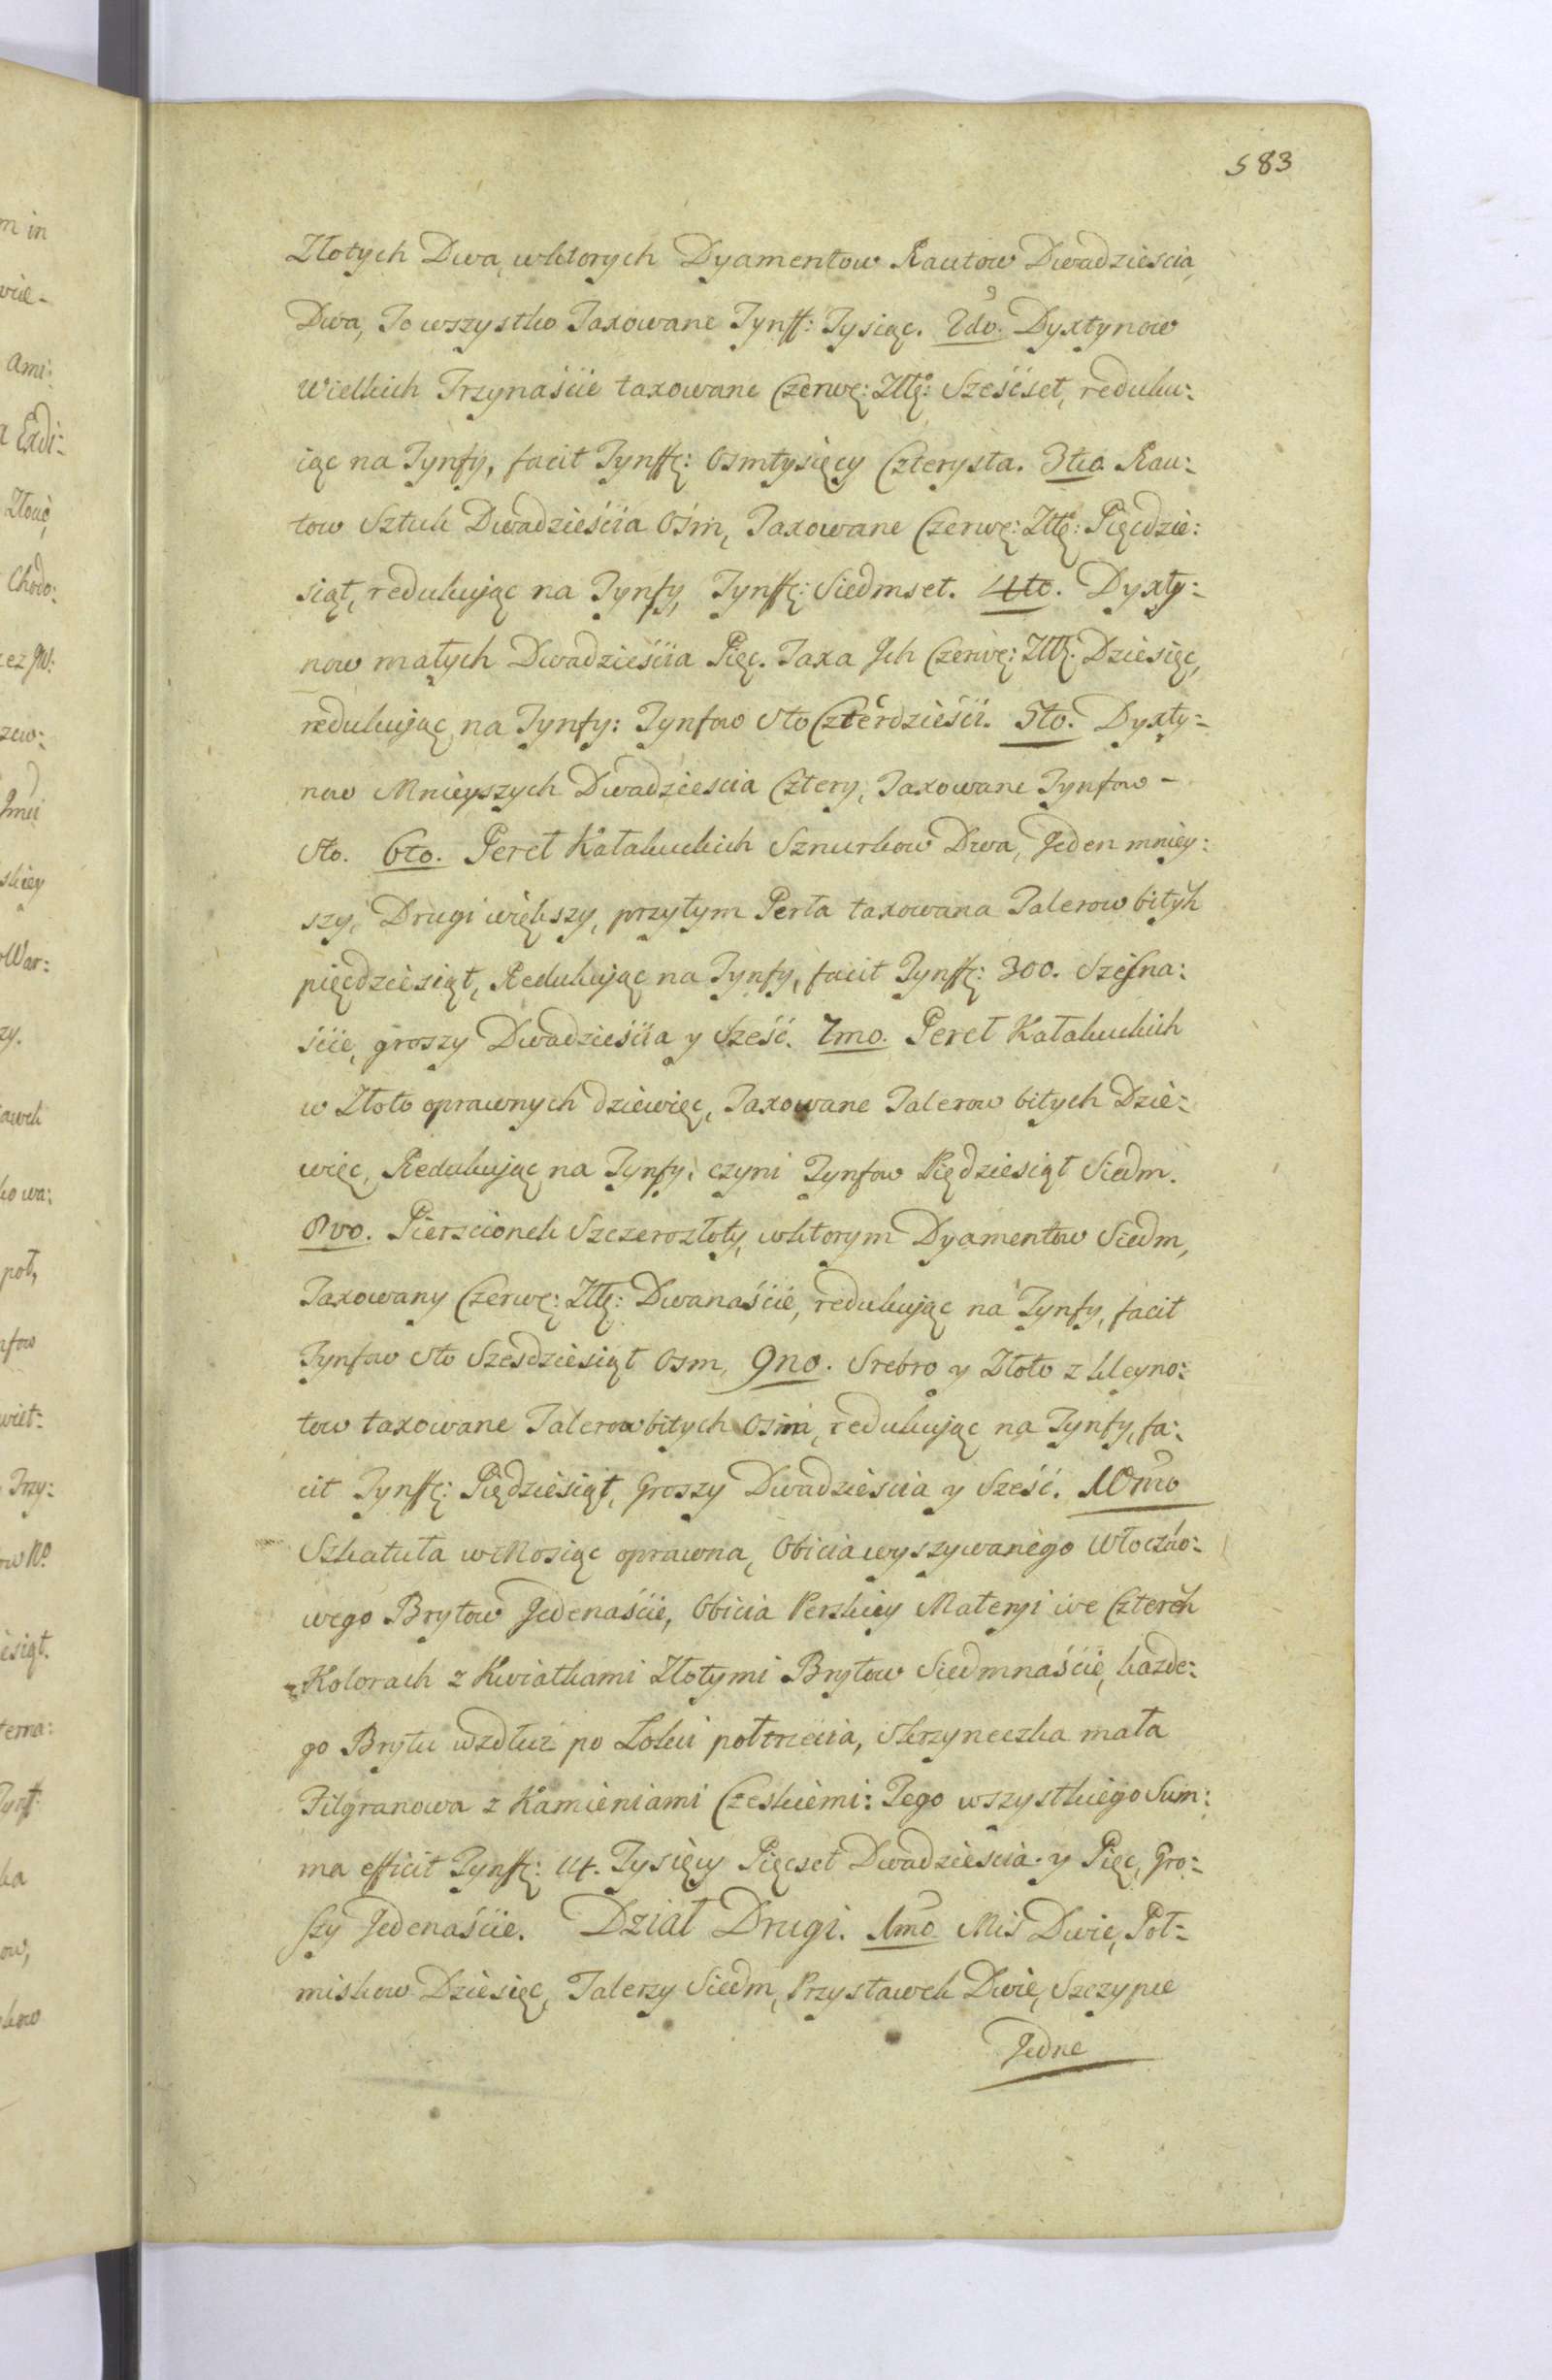 583
Złotych Dwa, wktorych Dyamentow Rautow Dwadziescia
Dwa, To wszystko Taxowane Tynff: Tysiąc. 2do. Dyxtynow
Wielkich Trzynaście taxowane Czerwę: Złłę: Sześćset, reduku:
iąc na Tynfy, facit Tynffę: Osmtysięcy Czterysta. 3tio. Rau:
tow Sztuk Dwadzieścia Ośm, Taxowane Czerwę: Złłę: Pięcdzie:
siąt, redukując na Tynfy, Tynffę: Siedmset. 4to. Dyxty:
now małych Dwadzieścia Pięc. Taxa Ich Czerwę: Złłę: Dziesięc,
redukując na Tynfy: Tynfow sto Czterdzieści. 5to. Dyxty:
now Mnieyszych Dwadziescia Cztery, Taxowane Tynfow -
sto. 6to. Pereł Kałakuckich Sznurkow Dwa, Jeden mniey:
szy, Drugi większy, przytym Perła taxowana Talerow bitych
pięcdziesiąt, Redukując na Tynfy, facit Tynffę: 300. Szesna:
ście, groszy Dwadzieścia y Sześć. 7mo. Pereł Kałakuckich
w Złoto oprawnych dziewięc, Taxowane Talerow bitych Dzie:
więc, Redukując na Tynfy, czyni Tynfow Pięcdziesiąt Siedm.
8vo. Pierscionek Szczerozłoty, wktorym Dyamentow Siedm,
Taxowany Czerwę: Złłę: Dwanaście, redukując na Tynfy, facit
Tynfow sto Szescdziesiąt Osm, 9no. Srebro y Złoto z kleyno:
tow taxowane Talerow bitych Osm, redukując na Tynfy, fa:
cit Tynffę: Pięcdziesiąt, Groszy Dwadziescia y Sześć. 10mo
Szkatuła wMosiąc oprawna, Obicia wyszywanego Włoczko:
wego Brytow Jedenaście, Obicia Perskiey Materyi we Czterech
Kolorach z Kwiatkami Złotymi Brytow Siedmnaście, kazde:
go Brytu wzdłuż po Łokci połtrzecia, Skrzyneczka mała
Filgranowa z Kamieniami Czeskiemi: Tego wszystkiego Sum:
ma efficit Tynffę: 14. Tysięcy Pięcset Dwadziescia y Pięc, Gro:
szy Jedenaście. Dział Drugi. 1mo Mis Dwie, Poł:
miskow Dziesięc, Talerzy Siedm, Przystawek Dwie, Szczypce
Jedne